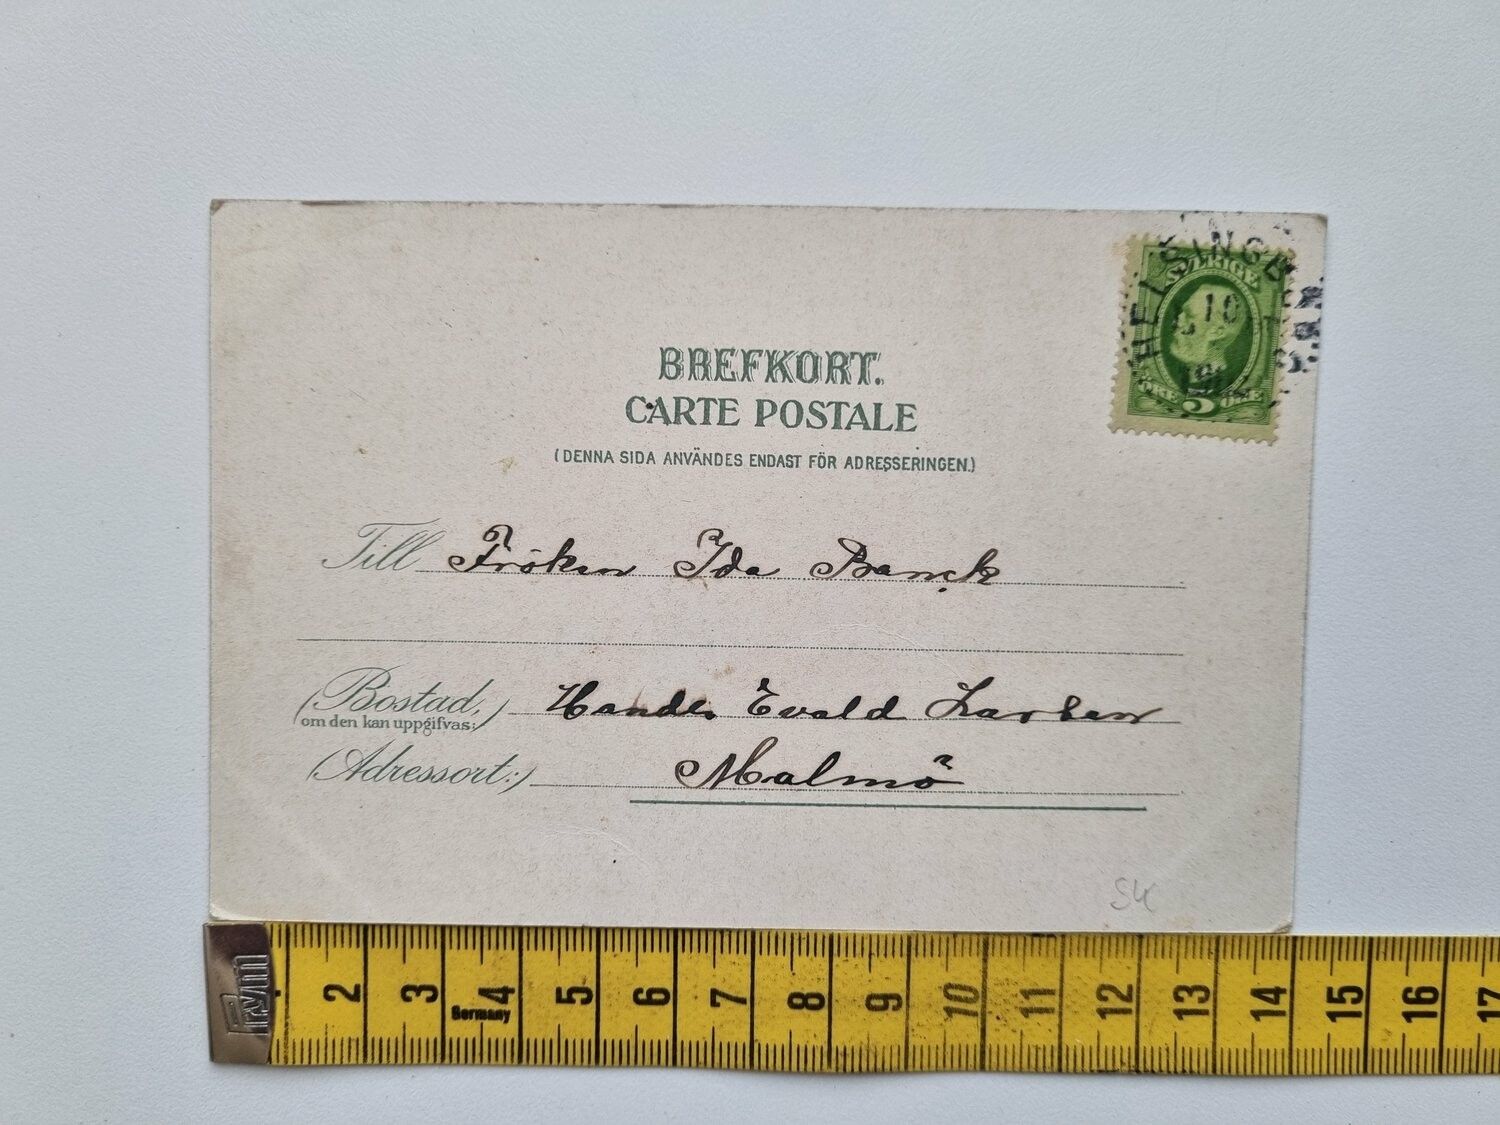 HELSINGB
SVERIGE
10
5
ÖRE ÖRE
BREFKORT.
CARTE POSTALE
(DENNA SIDA ANVÄNDES ENDAST FÖR ADRESSERINGEN.)
Till Fröken Ida Banck
(Bostad,
om den kan uppgifvas:) Handl. Evald Larsen
(Adressort:) Malmö
Prym
2 3 4 5 6 7 8 9 10 11 12 13 14 15 16 17
Germany